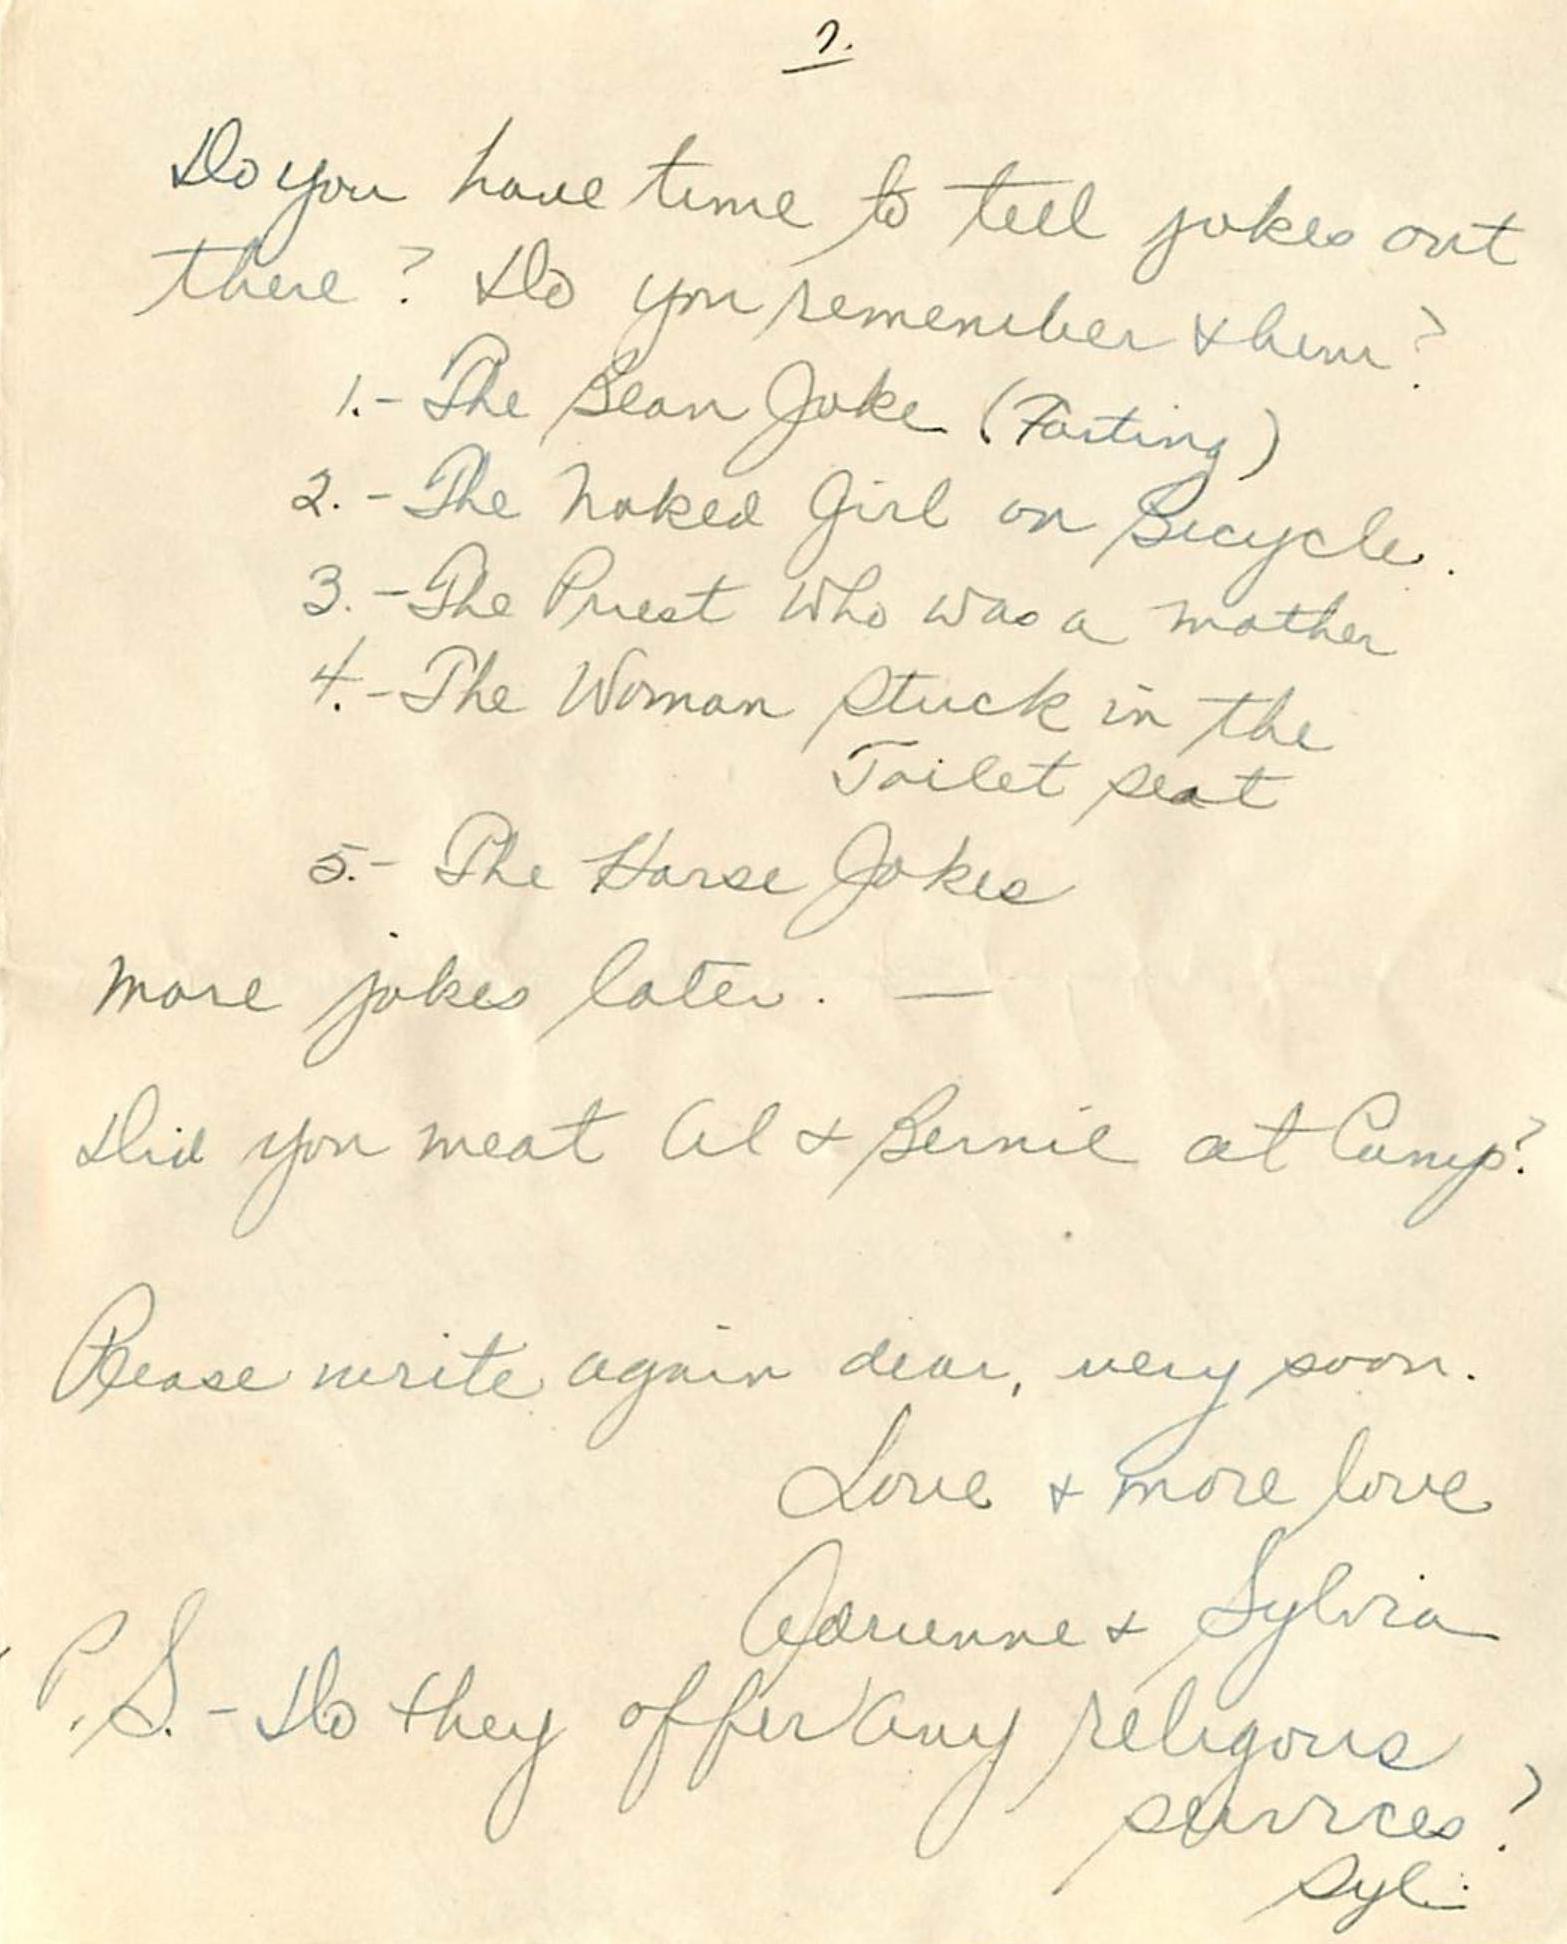 7.
Do you have time to tell jokes out
there? Do you remember them?
1.- The Bean Joke (Farting)
2.- The Naked Girl on Bicycle.
3.- The Priest Who was a mother
4.- The Woman Stuck in the
Toilet seat
5.- The Horse Jokes
More jokes later. —
Did you meat Al & Bernie at Camp?
Please write again dear, very soon.
Love & more love
Adrienne & Sylvia
P.S. - Do they offer any religous
services?
Syl.